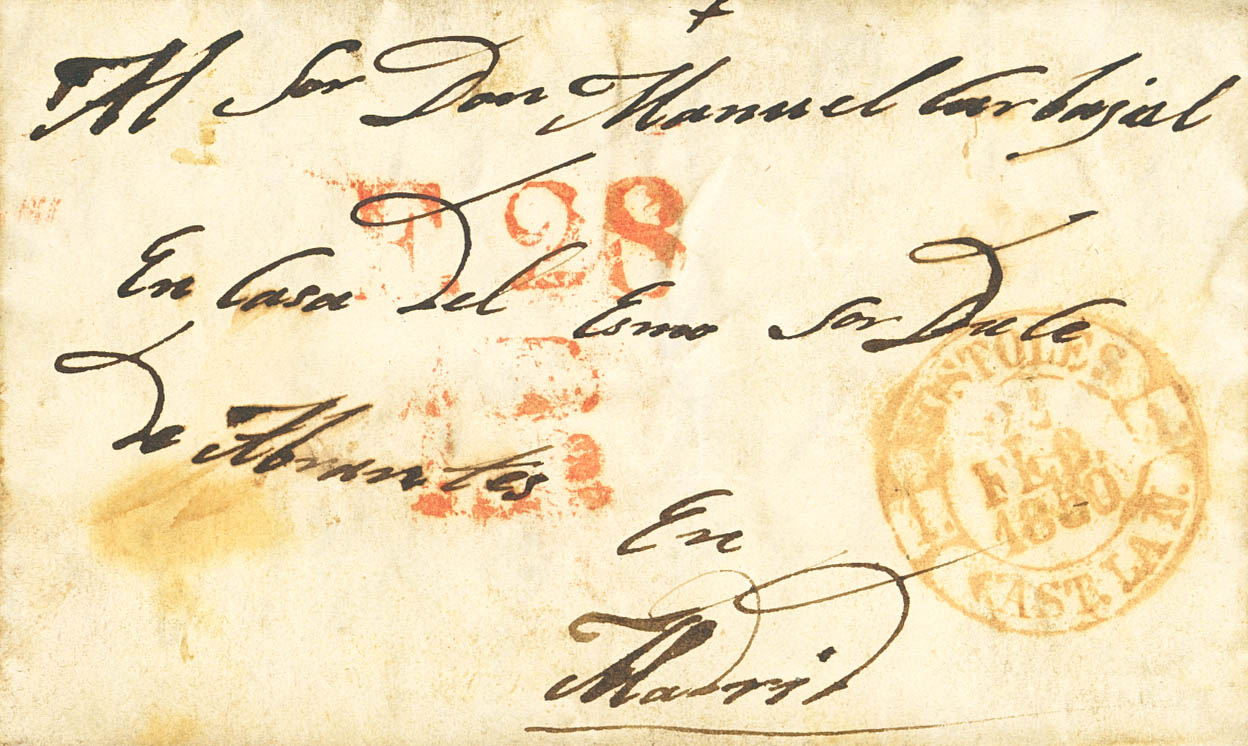 Al Sor Don Manuel Carbajal
T. 28
En Casa del Esmo Sor Duce
De Abrantes
En
Madrid
MOSTOLES
FEB.
1850
CAST. LA N.